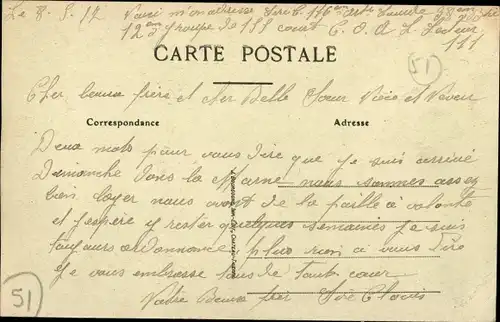 Le 8. 5. 17 Voici mon adresse
12 em groupe de 155 court C. O. A. L. Secteur
CARTE POSTALE
51
Cher beau frère et cher Belle Soeur Nièce et Neveu
Correspondance Adresse
Deux mots pour vous dire que je suis arrivé
Dimanche dans la Marne nous sommes assez
bien loger nous avont de la paille à volonté
et j'espère y rester quelques semaines je suis
toujours ordonnance plus rien à vous dire
Je vous embrasse tous de tout coeur
Votre Beau frèr Clovis
51